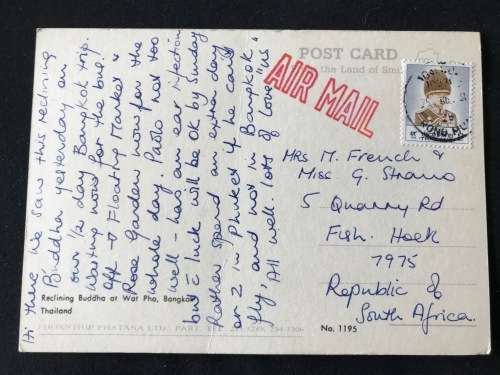 POST CARD
the Land of Smi
AIR MAIL
Hi there we saw this reclining
Buddha yesterday on
our ½ day Bangkok trip.
Waiting now for the bus,
off → Floating Market &
Rose Garden now for the
whole day. Paolo not too
well - has an ear infection
but c̄ luck will be ok by Sunday
Rather spend an extra day
or 2 in Phuket if he can't
fly, and not in Bangkok.
All well. Lots of love "us"
MRS M. French &
Miss G. Strano
5 Quarry Rd
Fish Hoek
7975
Republic of
South Africa.
Reclining Buddha at Wat Pho, Bangkok
Thailand
PHORNTHIP PHATANA LTD., PART. TEL.
No. 1195